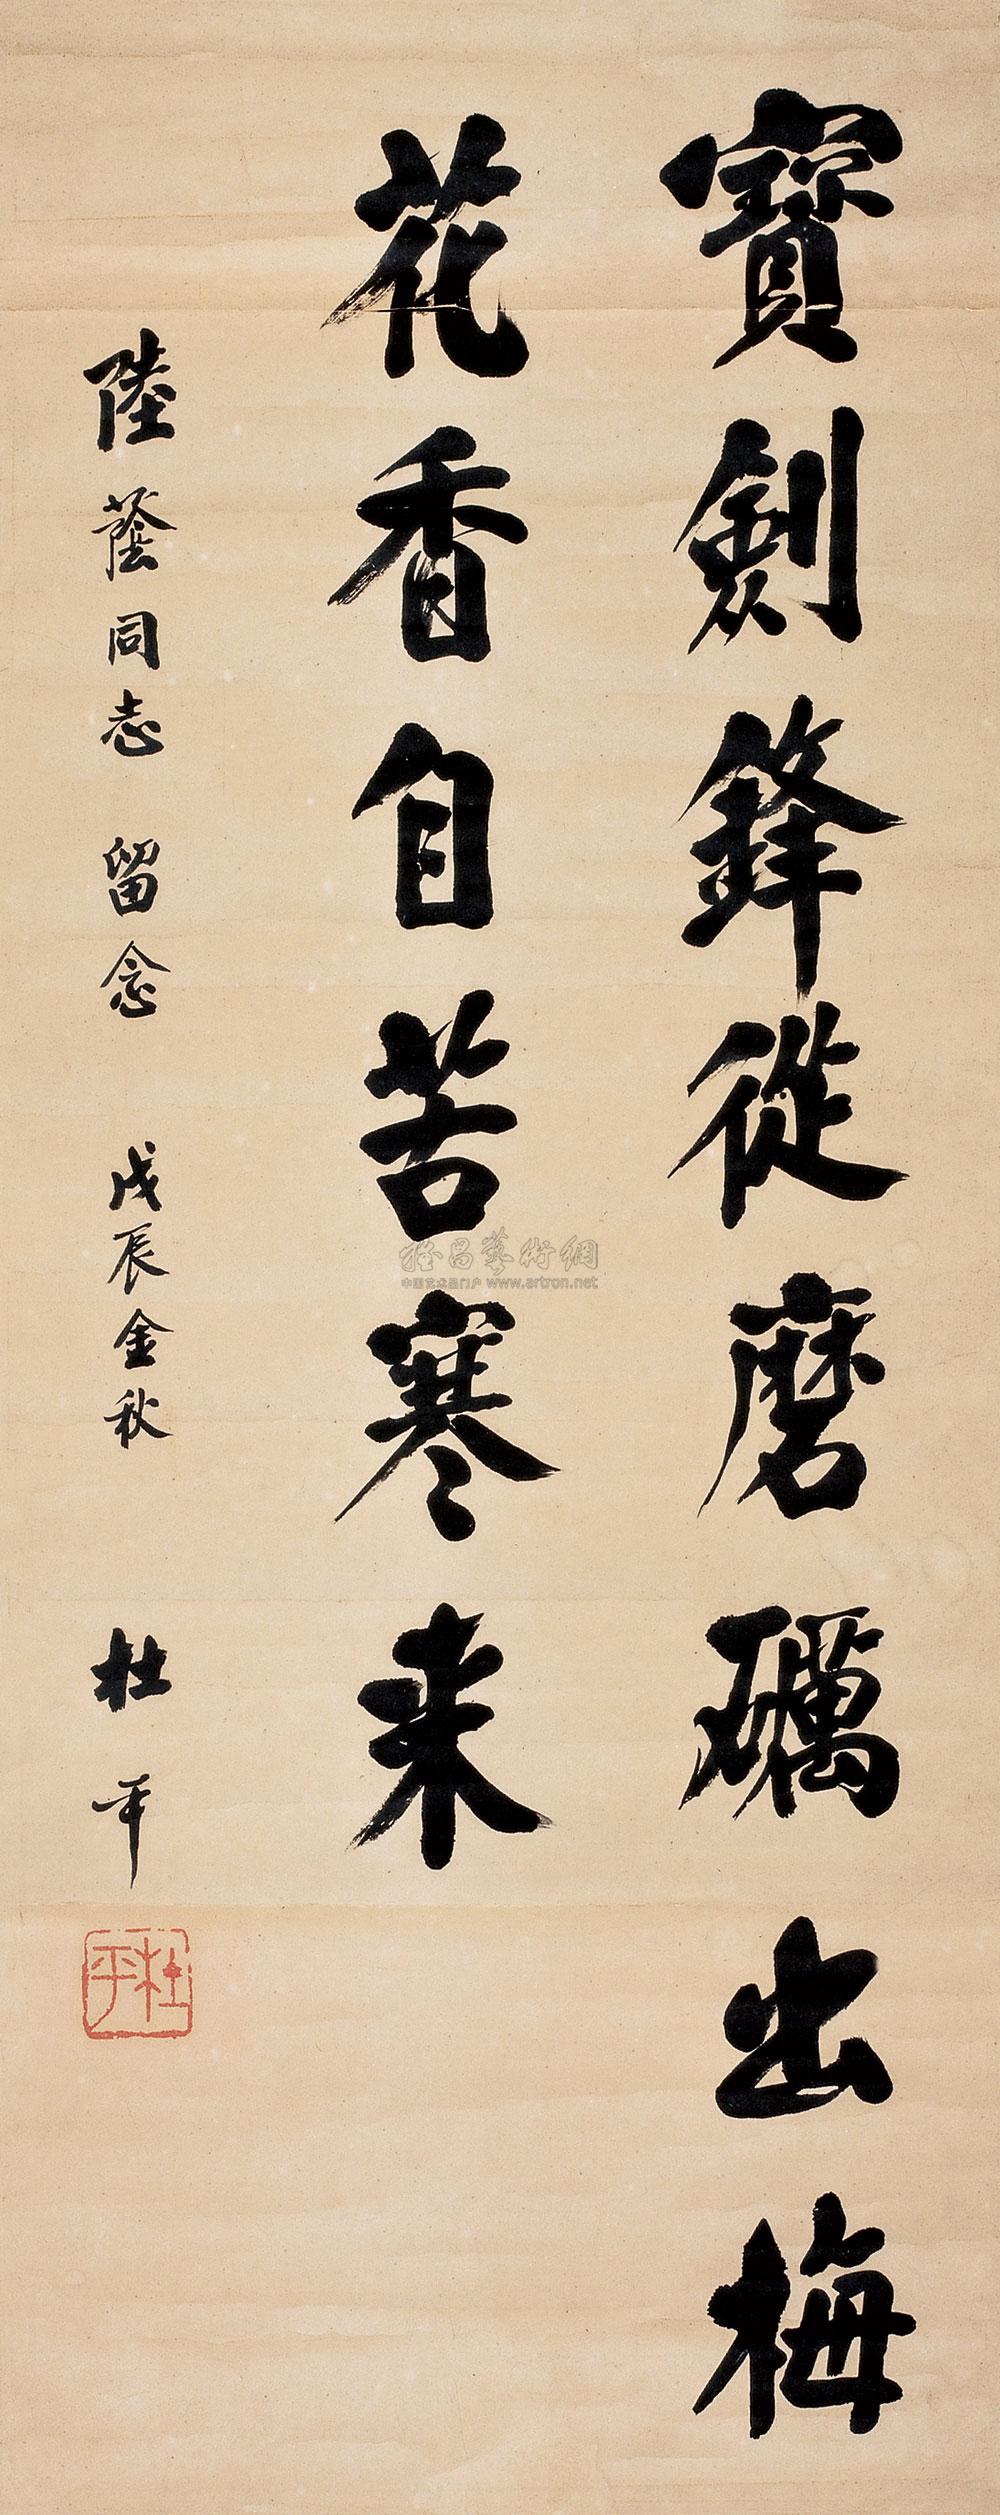 寶劍鋒從磨礪出梅
花香自苦寒来
陸蔭同志 留念 戊辰金秋 杜平
杜平
雅昌藝術網
中国艺术品门户 www.artron.net